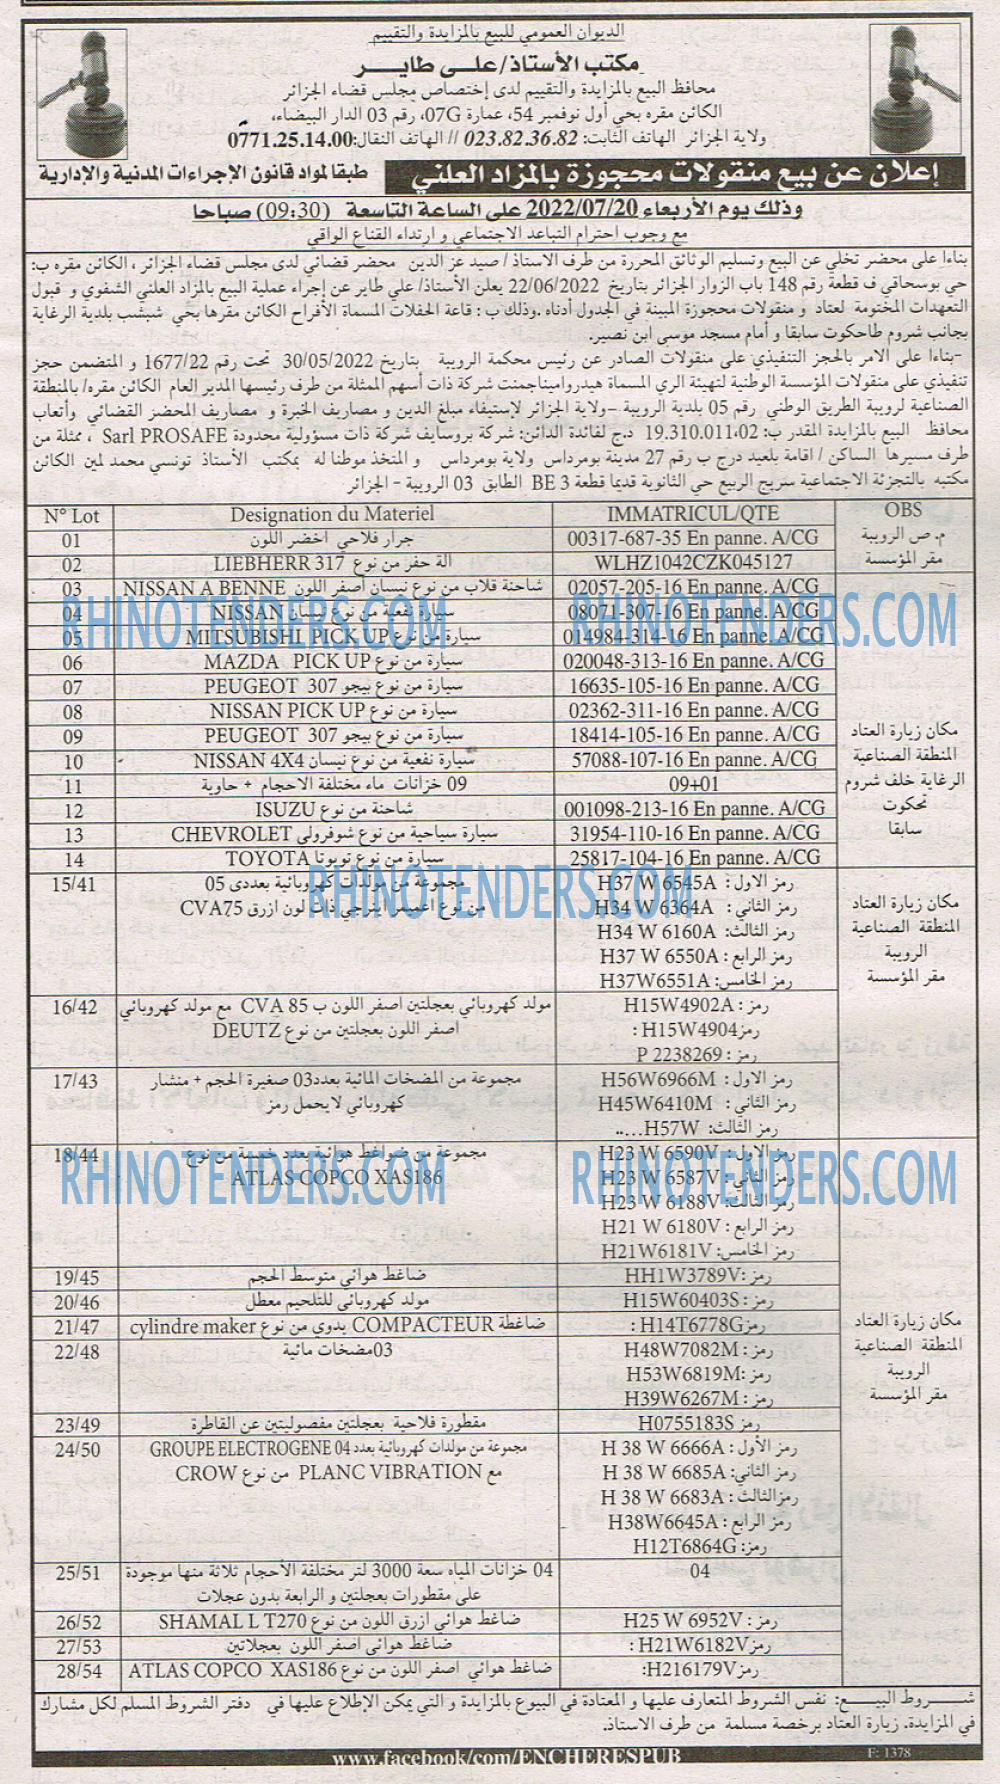 الديوان العمومي للبيع بالمزايدة والتقييم
مكتب الأستاذ/علي طاير
محافظ البيع بالمزايدة والتقييم لدى إختصاص مجلس قضاء الجزائر
الكائن مقره بحي أول نوفمبر 54، عمارة 07G، رقم 03 الدار البيضاء،
ولاية الجزائر الهاتف الثابت: 023.82.36.82 // الهاتف النقال:0771.25.14.00
إعلان عن بيع منقولات محجوزة بالمزاد العلني طبقا لمواد قانون الإجراءات المدنية والإدارية
وذلك يوم الأربعاء 2022/07/20 على الساعة التاسعة (09:30) صباحا
مع وجوب احترام التباعد الاجتماعي و ارتداء القناع الواقي
بناءا على محضر تخلي عن البيع وتسليم الوثائق المحررة من طرف الاستاذ/ صيد عز الدين محضر قضائي لدى مجلس قضاء الجزائر، الكائن مقره ب:
حي بوسحاقي ف قطعة رقم 148 باب الزوار الجزائر بتاريخ 22/06/2022 يعلن الأستاذ/علي طاير عن إجراء عملية البيع بالمزاد العلني الشفوي و قبول
التعهدات المختومة لعتاد و منقولات محجوزة المبينة في الجدول أدناه .وذلك ب: قاعة الحفلات المسماة الأفراح الكائن مقرها بحي شبشب بلدية الرغاية
بجانب شروم طاحكوت سابقا و أمام مسجد موسى ابن نصير.
-بناءا على الامر بالحجز التنفيذي على منقولات الصادر عن رئيس محكمة الرويبة بتاريخ 30/05/2022 تحت رقم 1677/22 و المتضمن حجز
تنفيذي على منقولات المؤسسة الوطنية لتهيئة الري المسماة هيدروامينا جمنت شركة ذات أسهم الممثلة من طرف رئيسها المدير العام الكائن مقره/ بالمنطقة
الصناعية لرويبة الطريق الوطني رقم 05 بلدية الرويبة -ولاية الجزائر لإستيفاء مبلغ الدين و مصاريف الخبرة و مصاريف المحضر القضائي وأتعاب
محافظ البيع بالمزايدة المقدر ب: 19.310.011.02 د.ج لفائدة الدائن: شركة بروسايف شركة ذات مسؤولية محدودة Sarl PROSAFE ، ممثلة من
طرف مسيرها الساكن / اقامة بلعيد درج ب رقم 27 مدينة بومرداس ولاية بومرداس و المتخذ موطنا له بمكتب الأستاذ تونسي محمد لمين الكائن
مكتبه بالتجزئة الاجتماعية سريج الربيع حي الثانوية قديما قطعة BE 3 الطابق 03 الرويبة - الجزائر
N° Lot Designation du Materiel IMMATRICUL/QTE OBS
01 جرار فلاحي اخضر اللون 00317-687-35 En panne. A/CG م. ص الرويبة
02 الة حفر من نوع LIEBHERR 317 WLHZ1042CZK045127 مقر المؤسسة
03 شاحنة قلاب من نوع نيسان أصفر اللون NISSAN A BENNE 02057-205-16 En panne. A/CG
04 سيارة نفعية من نوع نيسان NISSAN 08071-307-16 En panne. A/CG
05 سيارة من نوع MITSUBISHI PICK UP 014984-314-16 En panne. A/CG
06 سيارة من نوع MAZDA PICK UP 020048-313-16 En panne. A/CG
07 سيارة من نوع بيجو PEUGEOT 307 16635-105-16 En panne. A/CG
08 سيارة من نوع NISSAN PICK UP 02362-311-16 En panne. A/CG
09 سيارة من نوع بيجو PEUGEOT 307 18414-105-16 En panne. A/CG مكان زيارة العتاد
10 سيارة نفعية من نوع نيسان NISSAN 4X4 57088-107-16 En panne. A/CG المنطقة الصناعية
11 09 خزانات ماء مختلفة الاحجام + حاوية 09+01 الرغاية خلف شروم
12 شاحنة من نوع ISUZU 001098-213-16 En panne. A/CG تحكوت
13 سيارة سياحية من نوع شوفرولي CHEVROLET 31954-110-16 En panne. A/CG سابقا
14 سيارة من نوع تويوتا TOYOTA 25817-104-16 En panne. A/CG
15/41 مجموعة من مولدات كهروبائية بعددي 05 رمز الاول: H37 W 6545A مكان زيارة العتاد
من نوع اعميمر اينرجي ذات لون ازرق CVA75 رمز الثاني: H34 W 6364A المنطقة الصناعية
رمز الثالث: H34 W 6160A الرويبة
رمز الرابع : H37 W 6550A مقر المؤسسة
رمز الخامس: H37W6551A
16/42 مولد كهروبائي بعجلتين اصفر اللون ب CVA 85 مع مولد كهروبائي رمز : H15W4902A
اصفر اللون بعجلتين من نوع DEUTZ رمزH15W4904 :
رمز : P 2238269
17/43 مجموعة من المضخات المائية بعدد03 صغيرة الحجم + منشار رمز الاول: H56W6966M
كهروبائي لايحمل رمز رمز الثاني : H45W6410M
رمز الثالث: H57W.....
18/44 مجموعة من ضواغط هوائية بعدد خمسة من نوع رمز الاول: H23 W 6590V
ATLAS COPCO XAS186 رمز الثاني: H23 W 6587V
رمز الثالث: H23 W 6188V
رمز الرابع : H21 W 6180V
رمز الخامس: H21W6181V
19/45 ضاغط هوائي متوسط الحجم رمز :HH1W3789V
20/46 مولد كهروبائي للتلحيم معطل رمز :H15W60403S مكان زيارة العتاد
21/47 ضاغطة COMPACTEUR يدوي من نوع cylindre maker رمزH14T6778G : المنطقة الصناعية
22/48 03مضخات مائية رمز : H48W7082M الرويبة
رمز :H53W6819M مقر المؤسسة
رمز :H39W6267M
23/49 مقطورة فلاحية بعجلتين مفصوليتين عن القاطرة رمز H0755183S
24/50 مجموعة من مولدات كهروبائية بعدد 04 GROUPE ELECTROGENE رمز الأول: H 38 W 6666A
مع PLANC VIBRATION من نوع CROW رمز الثاني: H 38 W 6685A
رمزالثالث: H 38 W 6683A
رمز الرابع: H38W6645A
رمز: H12T6864G
25/51 04 خزانات المياه سعة 3000 لتر مختلفة الأحجام ثلاثة منها موجودة 04
على مقطورات بعجلتين و الرابعة بدون عجلات
26/52 ضاغط هوائي ازرق اللون من نوع SHAMAL L T270 رمز : H25 W 6952V
27/53 ضاغط هوائي اصفر اللون بعجلاتين رمزH21W6182V :
28/54 ضاغط هوائي اصفر اللون من نوع ATLAS COPCO XAS186 رمزH216179V:
شروط البيع: نفس الشروط المتعارف عليها و المعتادة في البيوع بالمزايدة و التي يمكن الإطلاع عليها في دفتر الشروط المسلم لكل مشارك
في المزايدة. زيارة العتاد برخصة مسلمة من طرف الاستاذ.
www.facebook/com/ENCHERESPUB F: 1378
RHINOTENDERS.COM RHINOTENDERS.COM
RHINOTENDERS.COM
RHINOTENDERS.COM RHINOTENDERS.COM